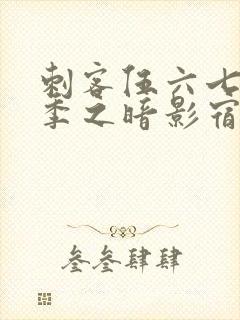 刺客伍六七
季之暗影宿
叁叁肆肆